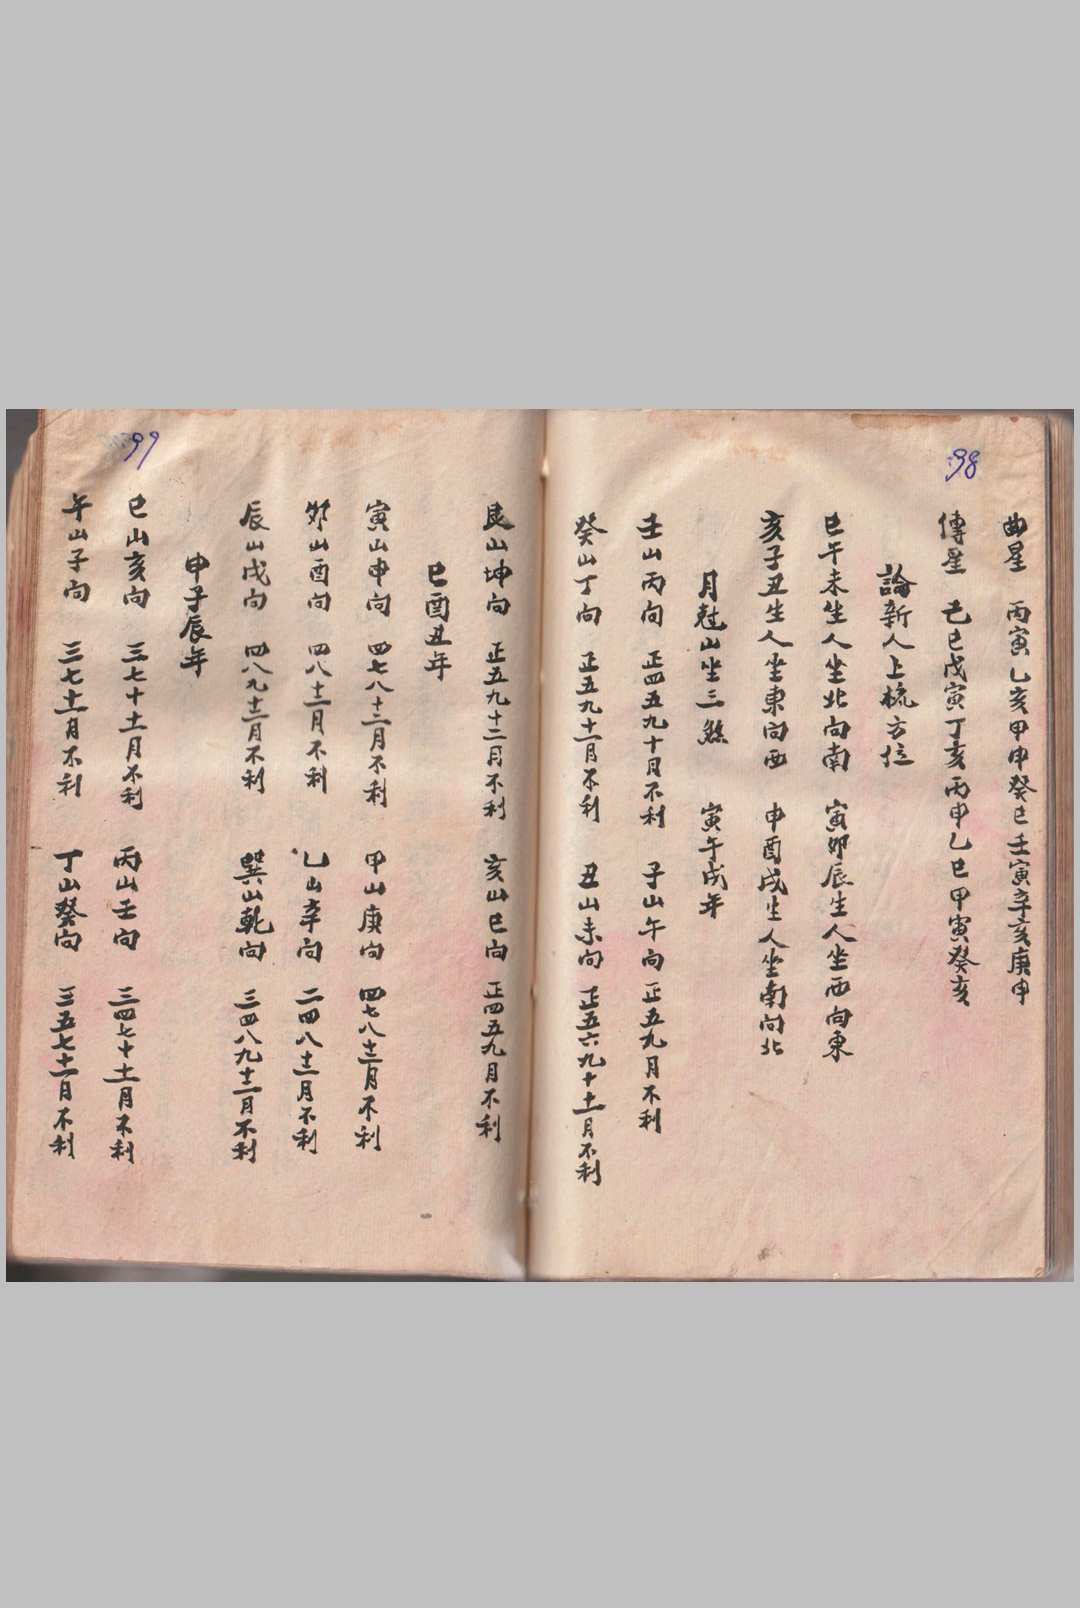 98
曲星　丙寅乙亥甲申癸巳壬寅辛亥庚申
傳星　己巳戊寅丁亥丙申乙巳甲寅癸亥
論新人上梳方位
巳午未生人坐北向南　寅卯辰生人坐西向東
亥子丑生人坐東向西　申酉戌生人坐南向北
月尅山坐三煞　寅午戌年
壬山丙向　正四五九十月不利　子山午向　正五九月不利
癸山丁向　正五九十一月不利　丑山未向　正五六九十十一月不利
99
艮山坤向　正五九十二月不利　亥山巳向　正四五九月不利
巳酉丑年
寅山申向　四七八十二月不利　甲山庚向　四七八十二月不利
卯山酉向　四八十二月不利　乙山辛向　二四八十二月不利
辰山戌向　四八九十二月不利　巽山乾向　三四八九十二月不利
申子辰年
巳山亥向　三七十十一月不利　丙山壬向　三四七十十一月不利
午山子向　三七十一月不利　丁山癸向　三五七十一月不利